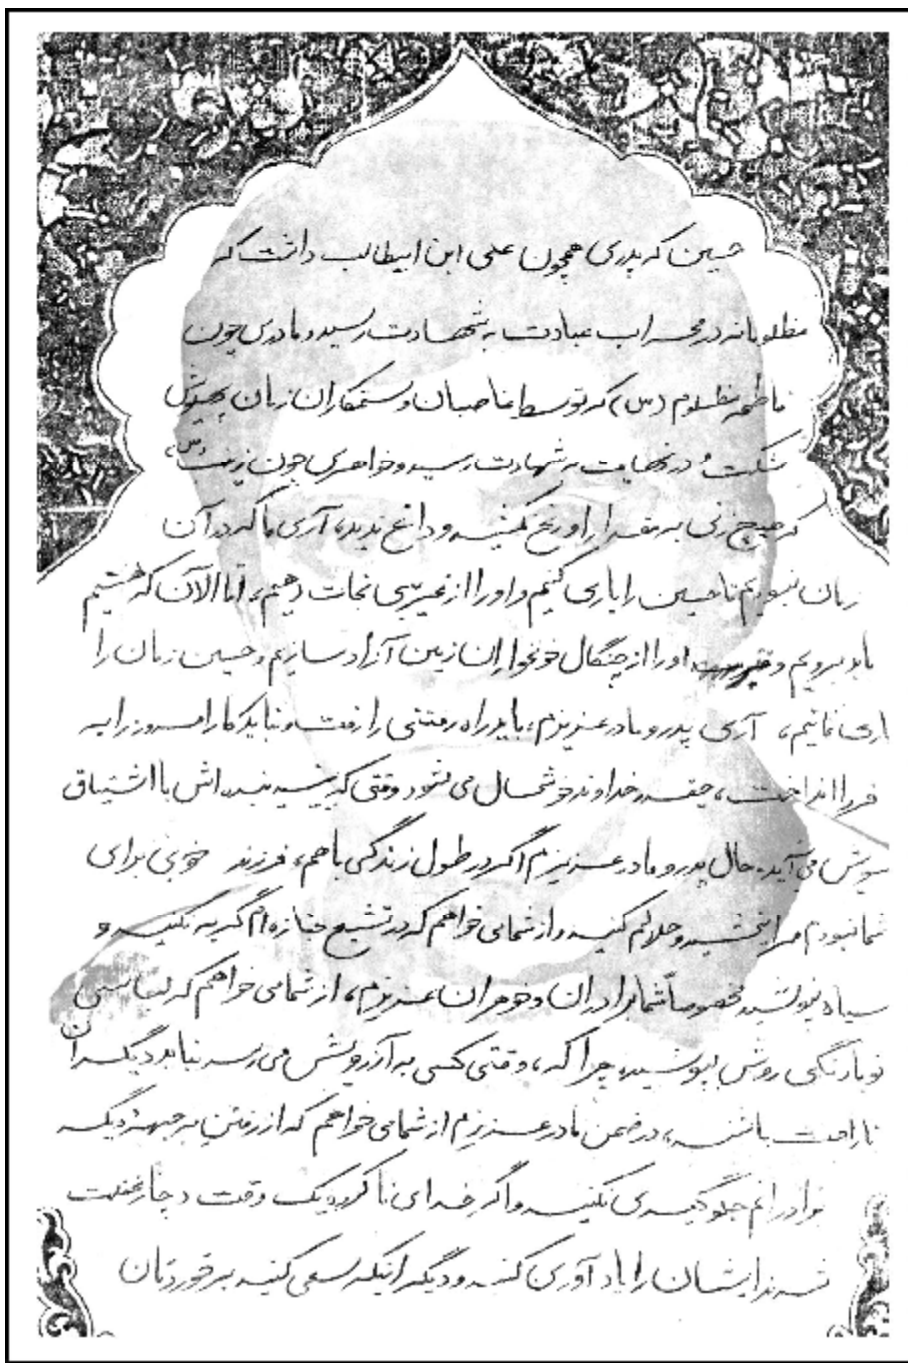 حسین که پدری همچون علی ابن ابیطالب داشت که
مظلومانه در محراب عبادت به شهادت رسید و مادری چون
فاطمه مظلوم (س) که توسط غاصبان و ستمکاران زمان پهلویش
شکست و در نهایت به شهادت رسید و خواهری چون زینب (س)،
که هیچ زنی به مقدار او رنج نکشید و داغ ندید، آری ما که در آن
زمان نبودیم تا حسین را یاری کنیم و او را از غریبی نجات دهیم، اما الآن که هستیم
باید برویم و او را از چنگال خونخواران زمین آزاد سازیم و حسین زمان را
یاری نمائیم، آری پدر و مادر عزیزم، باید راه رفتنی را رفت و نباید کار امروز را به
فردا انداخت، چقدر خداوند خوشحال می شود وقتی که ببیند بنده اش با اشتیاق
بسویش می آید. حال پدر و مادر عزیزم اگر در طول زندگی با هم، فرزند خوبی برای
شما نبودم مرا ببخشید و حلالم کنید و از شما می خواهم که در تشییع جنازه ام گریه نکنید و
سیاه نپوشید مخصوصاً شما برادران و خوهران عزیزم، از شما می خواهم که لباسهای
نو با رنگی روشن بپوشید، چرا که، وقتی کسی به آرزویش می رسد نباید دیگران
ناراحت باشند، در ضمن مادر عزیزم از شما می خواهم که از رفتن به جبهه دیگر
برادرانم جلوگیری نکنید و اگر خدای نا کرده یک وقت دچار غفلت
شدند ایشان را یاد آوری کنید و دیگر اینکه سعی کنید برخوردتان